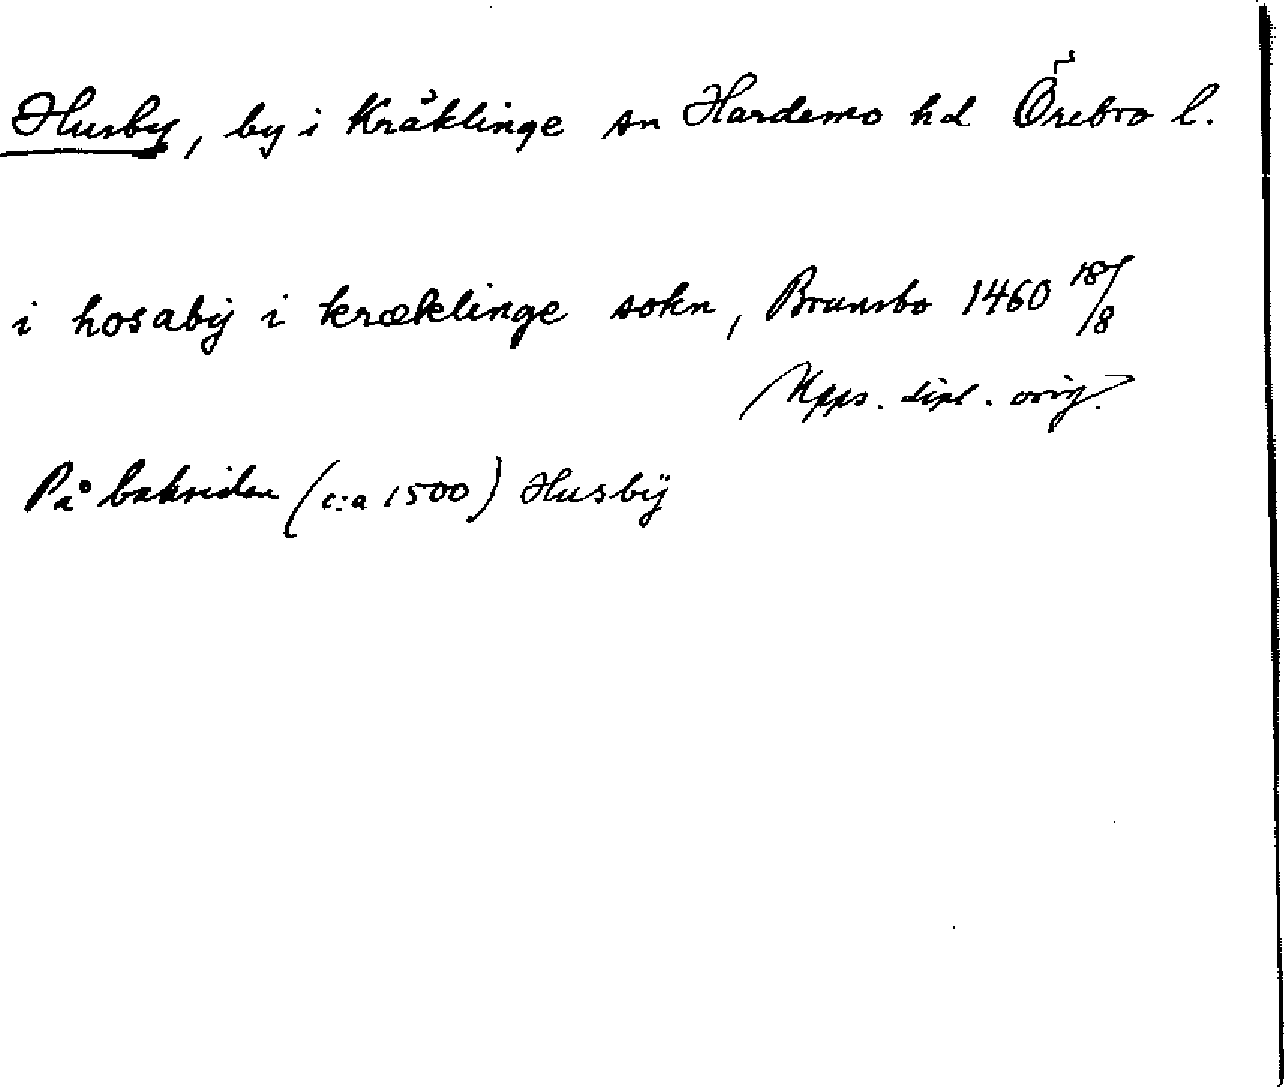 Husby, by i Kräklinge sn Hardemo hd Örebro l.
i hosabÿ i kræklinge sokn, Brunsbo 1460 18/8
Upps. dipl. orig.
På baksidan (c:a 1500) Husbÿ